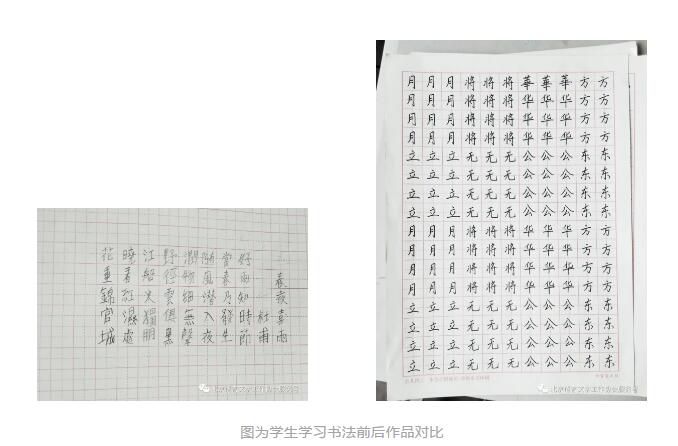 春夜喜雨
杜甫
好雨知時節
當春乃發生
隨風潛入夜
潤物細無聲
野徑雲俱黑
江船火獨明
曉看紅濕處
花重錦官城
月月月将将将華華華方方
月月月将将将华华华方方
月月月将将将华华华方方
月月月将将将华华华方方
立立立无无无公公公东东
立立立无无无公公公东东
立立立无无无公公公东东
立立立无无无公公公东东
月月月将将将华华华方方
月月月将将将华华华方方
月月月将将将华华华方方
月月月将将将华华华方方
立立立无无无公公公东东
立立立无无无公公公东东
立立立无无无公公公东东
立立立无无无公公公东东
图为学生学习书法前后作品对比